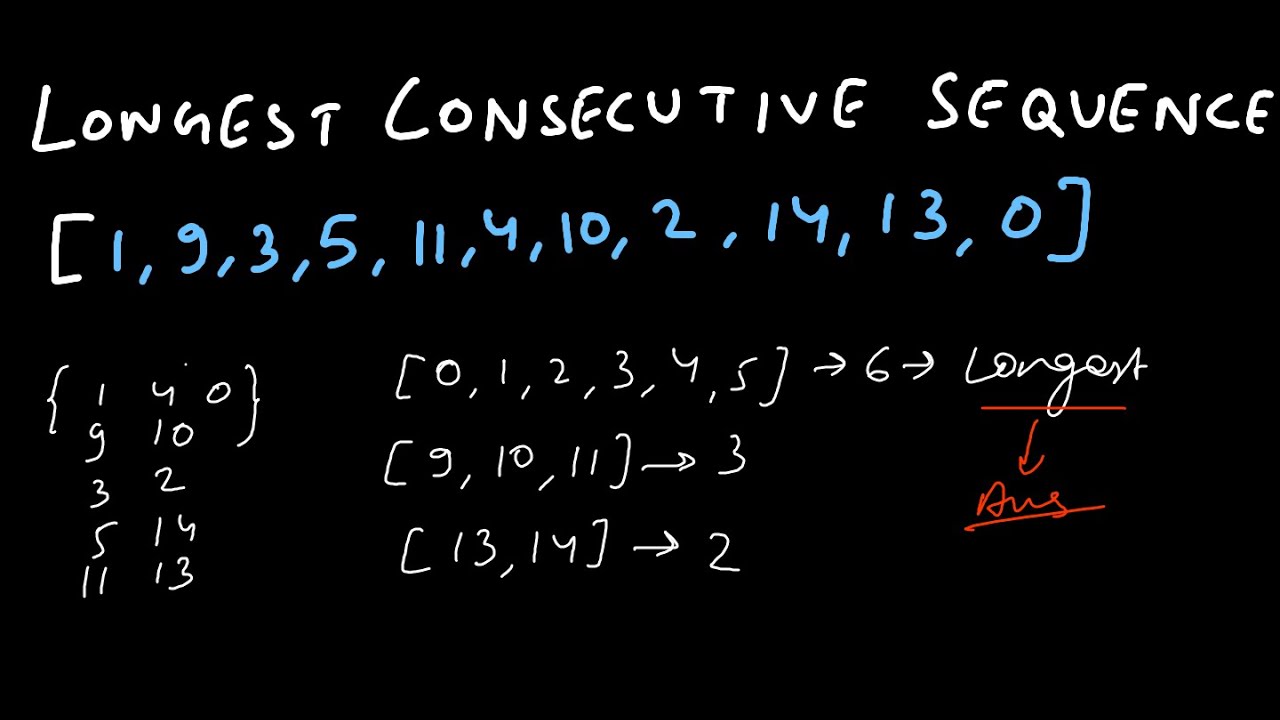 LONGEST CONSECUTIVE SEQUENCE
[1, 9, 3, 5, 11, 4, 10, 2, 14, 13, 0]
{ 1 4 0 }
9 10
3 2
5 14
11 13
[0, 1, 2, 3, 4, 5] → 6 → Longest
[9, 10, 11] → 3
[13, 14] → 2
↓
Ans